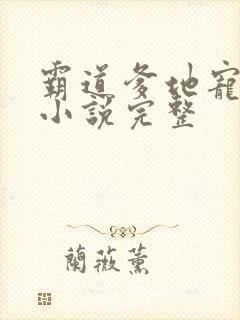 霸道爹地寵
小說完整
蘭薇薰